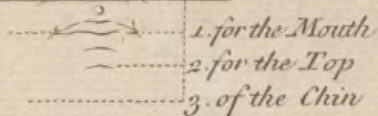 2
1. for the Mouth
2. for the Top
3. of the Chin